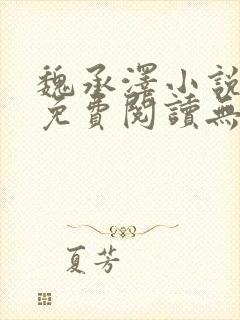 魏承澤小說
免費閱讀無
夏芳